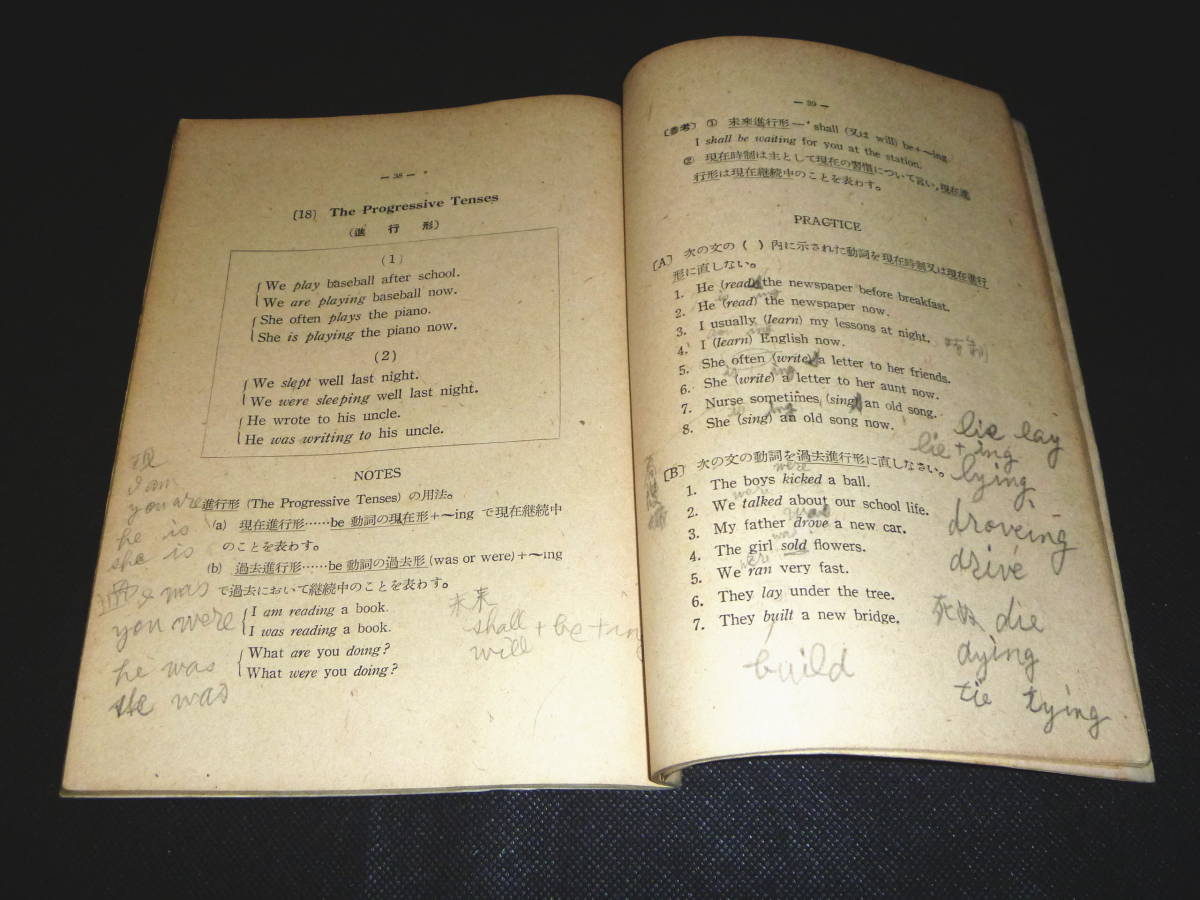 — 38 —
〔18〕 The Progressive Tenses
(進 行 形)
(1)
We play baseball after school.
We are playing baseball now.
She often plays the piano.
She is playing the piano now.
(2)
We slept well last night.
We were sleeping well last night.
He wrote to his uncle.
He was writing to his uncle.
NOTES
進行形 (The Progressive Tenses) の用法。
(a) 現在進行形……be 動詞の現在形+〜ing で現在継続中
のことを表わす。
(b) 過去進行形……be 動詞の過去形 (was or were)+〜ing
で過去において継続中のことを表わす。
I am reading a book.
I was reading a book.
What are you doing?
What were you doing?
現
I am
you are
he is
she is
過 was
you were
he was
she was
未来
shall
will + be + ing
— 39 —
〔参考〕 ① 未来進行形—shall (又は will) be+〜ing
I shall be waiting for you at the station.
② 現在時制は主として現在の習慣について言い, 現在進
行形は現在継続中のことを表わす。
PRACTICE
〔A〕 次の文の ( ) 内に示された動詞を現在時制又は現在進行
形に直しない。
1. He (read) the newspaper before breakfast.
is ing
2. He (read) the newspaper now.
3. I usually (learn) my lessons at night.
am ing
4. I (learn) English now.
時制
5. She often (write) a letter to her friends.
is ing
6. She (write) a letter to her aunt now.
7. Nurse sometimes (sing) an old song.
is ing
8. She (sing) an old song now.
〔B〕 次の文の動詞を過去進行形に直しなさい。
were
1. The boys kicked a ball.
were
2. We talked about our school life.
was
3. My father drove a new car.
was
4. The girl sold flowers.
were
5. We ran very fast.
6. They lay under the tree.
7. They built a new bridge.
build
lie lay
lie + ing
lying
droveing
drive
死ぬ die
dying
tie tying